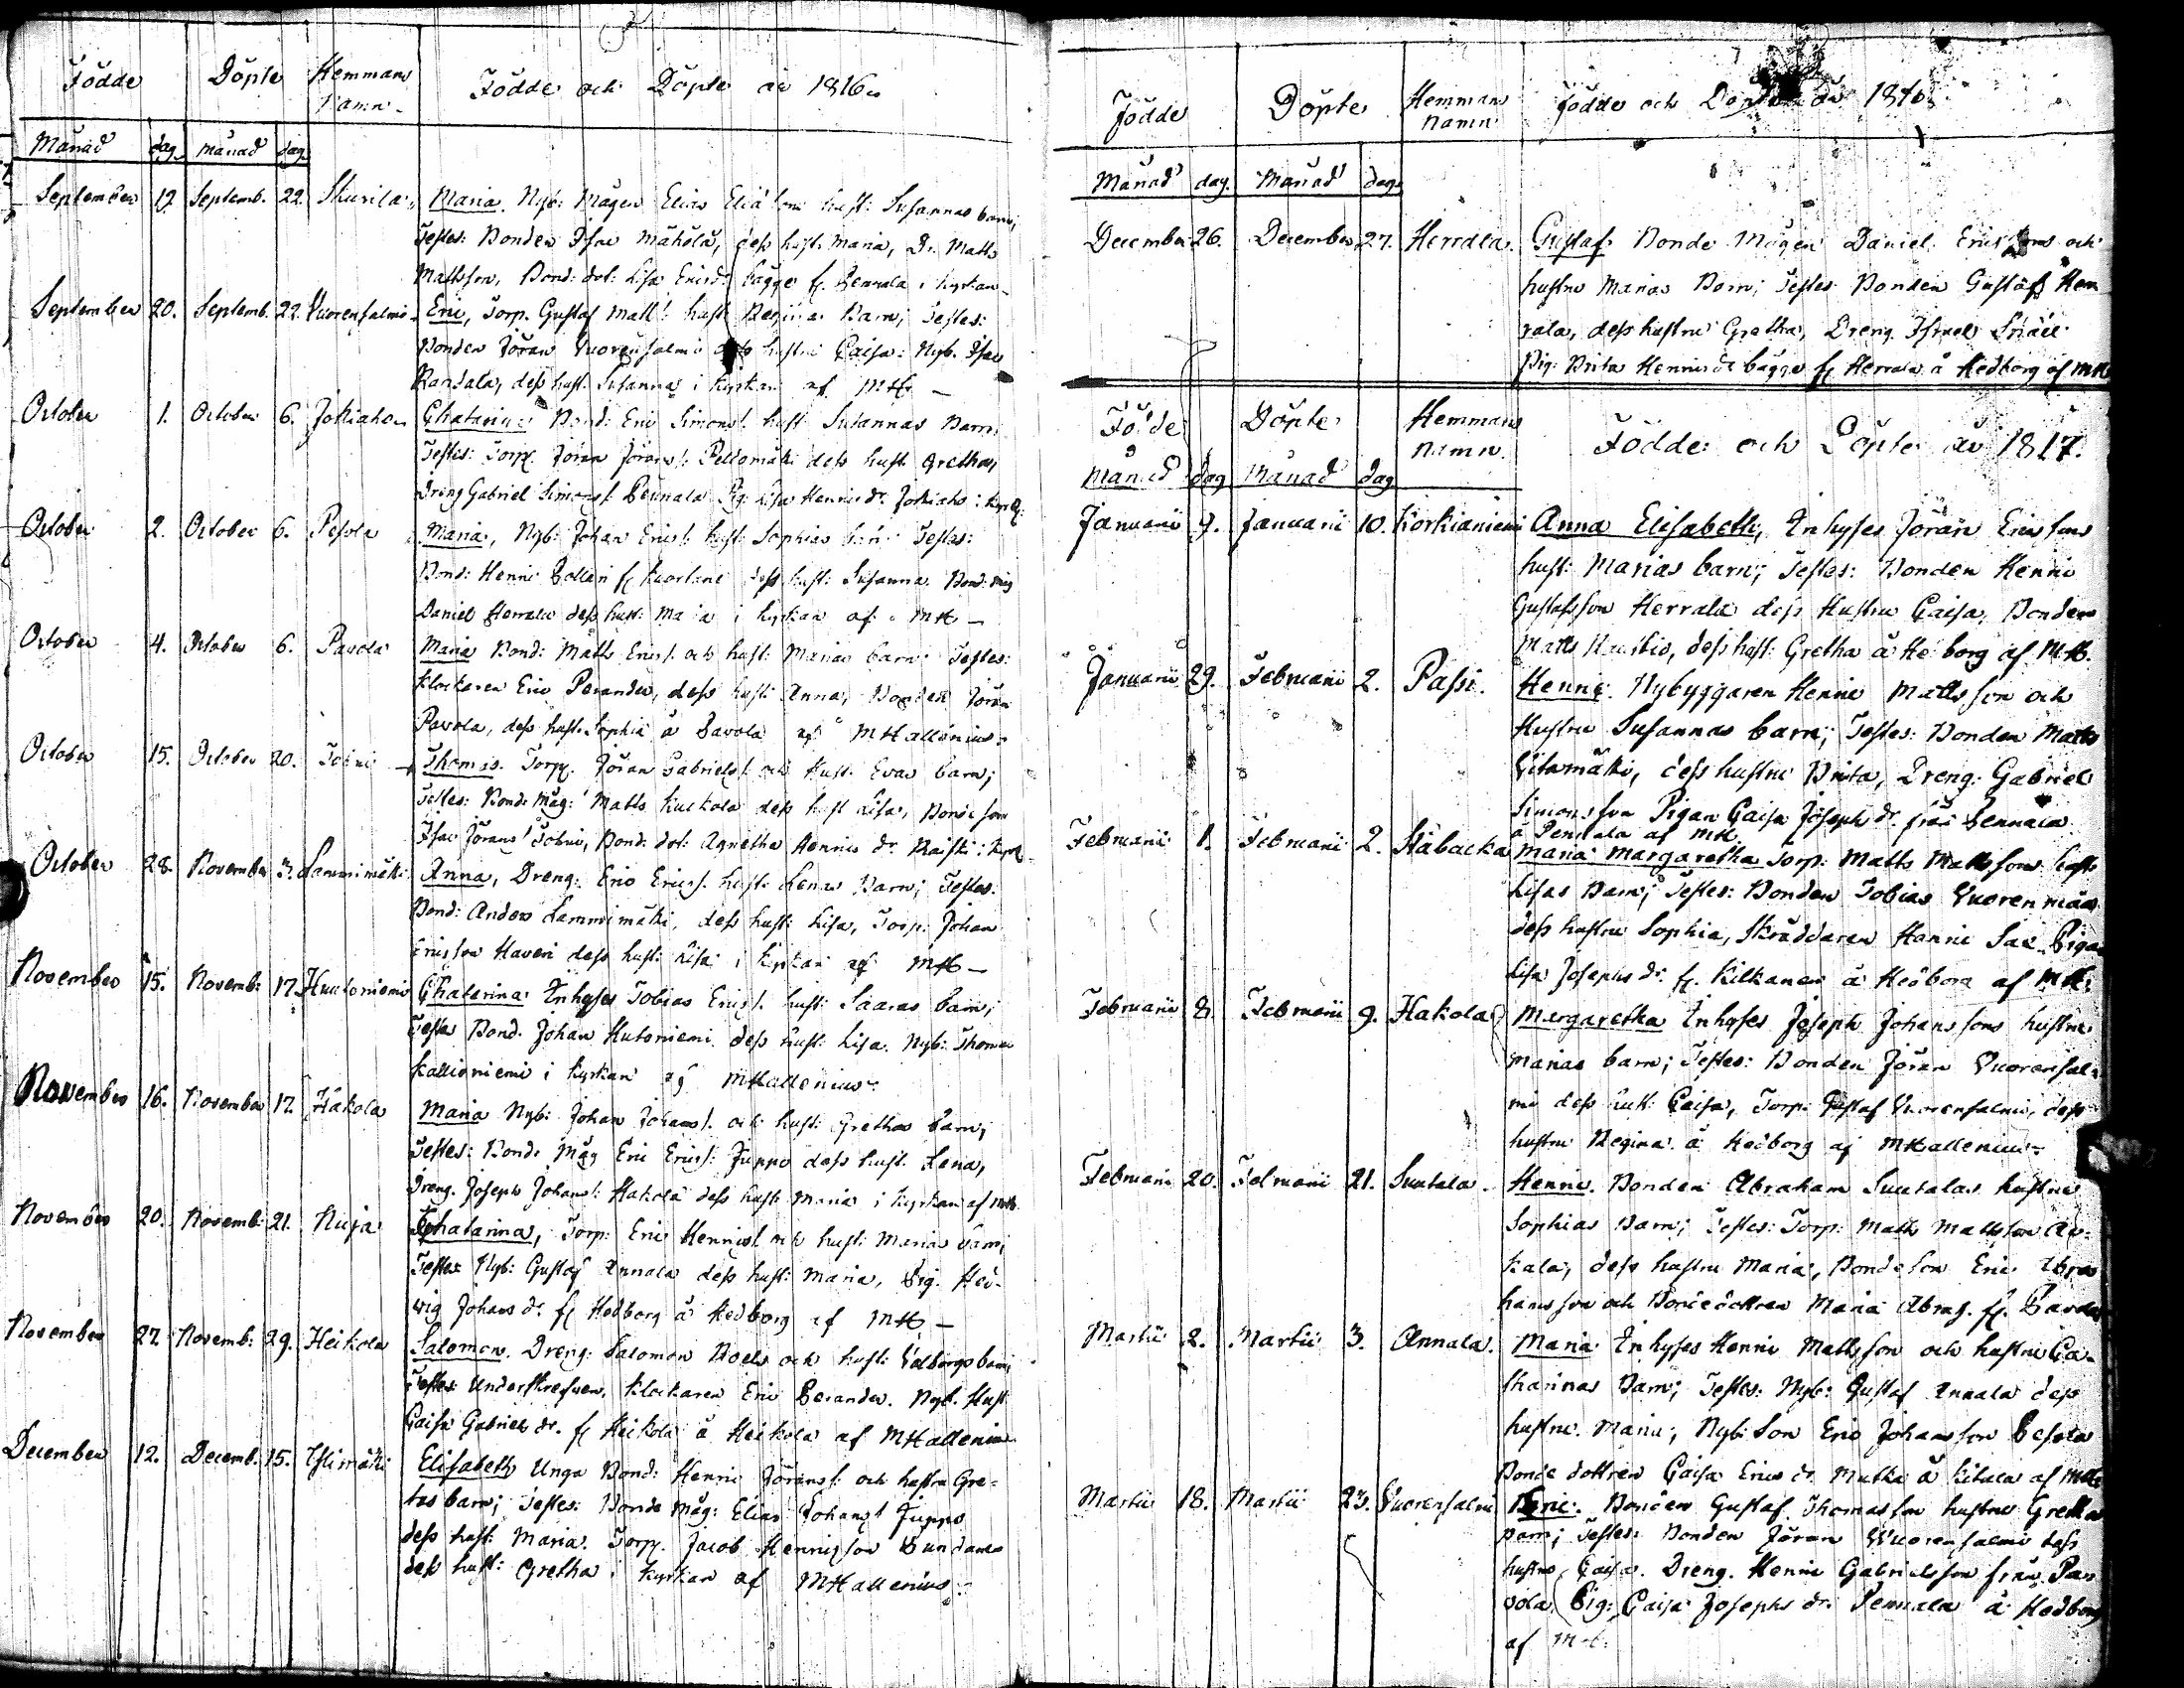 Födde Döpte Hemmans Namn Födde och Döpte år 1816
Månad dag månad dag
September 17 Septemb. 22. Skurila Maria. Nyb: Mågen Elias Elia sons hust: Susannas barn;
Testes: Bonden Isac Mäkölä, dess hust. Maria, Dr. Matts
Mattsson, Bond: dot: Lisa Ericsdr bägge fr. Pennala i kyrkan
September 20. Septemb. 22. Vuorensalmi Eric, Torp. Gustaf Matts. hust Reginas Barn; Testes:
Bonden Jöran Vuorensalmi dess hustru Caisa: Nyb. Isac
Randala, dess hust. Susanna i kyrkan af MH
October 1. October 6. Jokiaho Chatarina Bond: Eric Simons. hust Susannas Barn
Testes: Torp. Jöran Jörans. Peldomäki dess hust Gretha,
Dreng Gabriel Simons. Pennala Pig: Lisa Hennis dr. Jokiaho i kyrk
October 2. October 6. Pesola Maria, Nyb: Johan Erics. hust: Sophias barn Testes:
Bond: Henric fr Kuortane dess hust: Susanna Bond: måg
Daniel Herrala dess hust: Maria i kyrkan af MH
October 4. October 6. Pavola Maria Bond: Matts Erics. och hust: Marias barn Testes:
Klockaren Eric Perander, dess hust: Anna, Bonden Jöran
Pavola, dess hust. Sophia å Pavola af MHallenius
October 15. October 20. Thomas. Torp. Jöran Gabriels. och Hust. Evas barn;
Testes: Bond: Måg: Matts Kuckola dess hust Lisa, Bonde son
Isac Jörans. Bond. dot: Agnetha Hennis dr. i kyrk
October 28. November 3. Lammimäki Anna, Dreng: Eric Erics. hust: Lenas Barn; Testes:
Bond: Anders Lammimäki, dess hust: Lisa, Torp. Johan
Ericsson Haveri dess hust: Lisa i kyrkan af MH
November 15. Novemb: 17. Huutoniemi Chatarina Inhyses Tobias Erics. hust: Saaras barn;
Testes Bond. Johan Hutoniemi dess hust: Lisa. Nyb: Thomas
Kallioniemi i kyrkan af MHallenius
November 16. November 17. Hakola Maria Nyb: Johan Johans. och hust: Grethas barn;
Testes: Bond: Måg Eric Erics. Juppo dess hust. Lena,
Dreng. Joseph Johans: Hakola dess hust: Maria i kyrkan af MH
November 20. Novemb: 21. Ruja Chatarina, Torp: Eric Hennis. och hust: Marias barn;
Testes Nyb: Gustaf Annala dess hust: Maria, Pig. Hed-
wig Johans dr. fr Hedborg å Hedborg af MH
November 27. Novemb: 29. Heikola Salomon. Dreng: Salomon Roels och hust: Valborgs barn
Testes Underskrefven, Klockaren Eric Perander. Nyb. Hust
Caisa Gabriels dr. fr Heikola å Heikola af MHallenius
December 12. Decemb. 15. Elisabeth Unga Bond: Henric Jörans. och hustru Gre-
tas barn; Testes: Bonde måg: Elias Johans. Juppo
dess hust: Maria. Torp. Jacob Hennisson
dess hust: Gretha i kyrkan af MHallenius
Födde Döpte Hemmans namn Födde och Döpte år 1816
Månad dag. Månad dag.
December 26. December 27. Herrala Gustaf Bonde Mågen Daniel Ericssons och
hustru Marias Barn; Testes Bonden Gustaf Her
rala, dess hustru Gretha, Dreng. Israel
Pig: Brita Hennis dr bägge fr Herrala å Hedborg af MH
Födde Döpte Hemmans namn. Födde och Döpte år 1817.
månad dag månad dag
Januarii 7. Januarii 10. Korkianiemi Anna Elisabeth, Inhyses Jöran Ericssons
hust: Marias barn; Testes: Bonden Henric
Gustafsson Herrala dess Hustru Caisa, Bonden
Matts dess hust: Gretha å Hedborg af MH.
Januarii 29. Februarii 2. Passi. Henric. Nybyggaren Henric Mattsson och
Hustru Susannas barn; Testes: Bonden Matts
Vitamäki, dess hustru Brita, Dreng: Gabriel
Simonsson Pigan Caisa Joseph dr. från Pennala
å Pennala af MH
Februarii 1. Februarii 2. Habacka Maria Margaretha Torp: Matts Mattsons hust:
Lisas Barn; Testes: Bonden Tobias Vuorenmaa
dess hustru Sophia, Skräddaren Henric Pigan
Lisa Josephs dr. fr. Kilkanen å Hedborg af MH.
Februarii 8. Februarii 9. Hakola Margaretha Inhyses Joseph Johanssons hustru
Marias barn; Testes: Bonden Jöran Vuorensal-
mi dess hust: Caisa, Torp: Gustaf Vuorensalmi, dess
hustru Regina å Hedborg af MHallenius
Februarii 20. Februarii 21. Suutala Henric. Bonden Abraham Suutalas hustru
Sophias Barn; Testes: Torp: Matts Mattsson
kala, dess hustru Maria, Bonde Son Eric Abra
hamsson och Bondedottren Maria Abrah. fr.
Martii 2. Martii 3. Annala. Maria Inhyses Henric Mattsson och hustru Ca-
tharinas Barn; Testes: Nyb: Gustaf Annala dess
hustru Maria, Nyb: Son Eric Johansson Pesola
Bonde dottren Caisa Erics dr. Mutka å af MH
Martii 18. Martii 23. Vuorensalmi Eric. Bonden Gustaf Thomasson hustru Grethas
barn; Testes: Bonden Jöran Vuorensalmi dess
hustru Caisa. Dreng. Henric Gabrielsson från Pa
vola Pig: Caisa Josephs dr. Pennala å Hedborg
af MH.